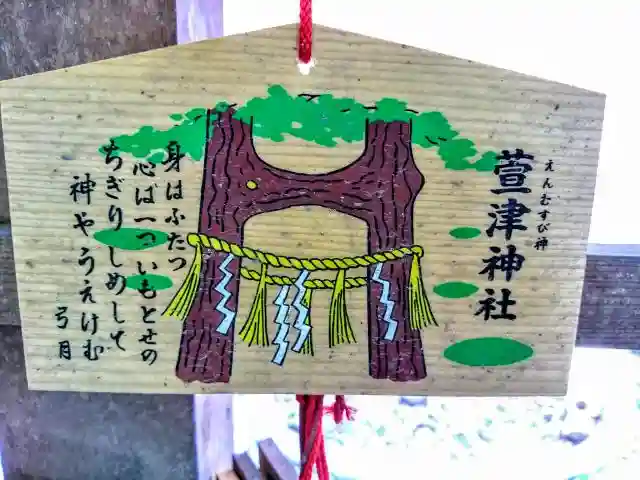 えんむすび神
萱津神社
身はふたつ
心は一つ いもとせの
ちぎりしめして
神やうえけむ
弓月